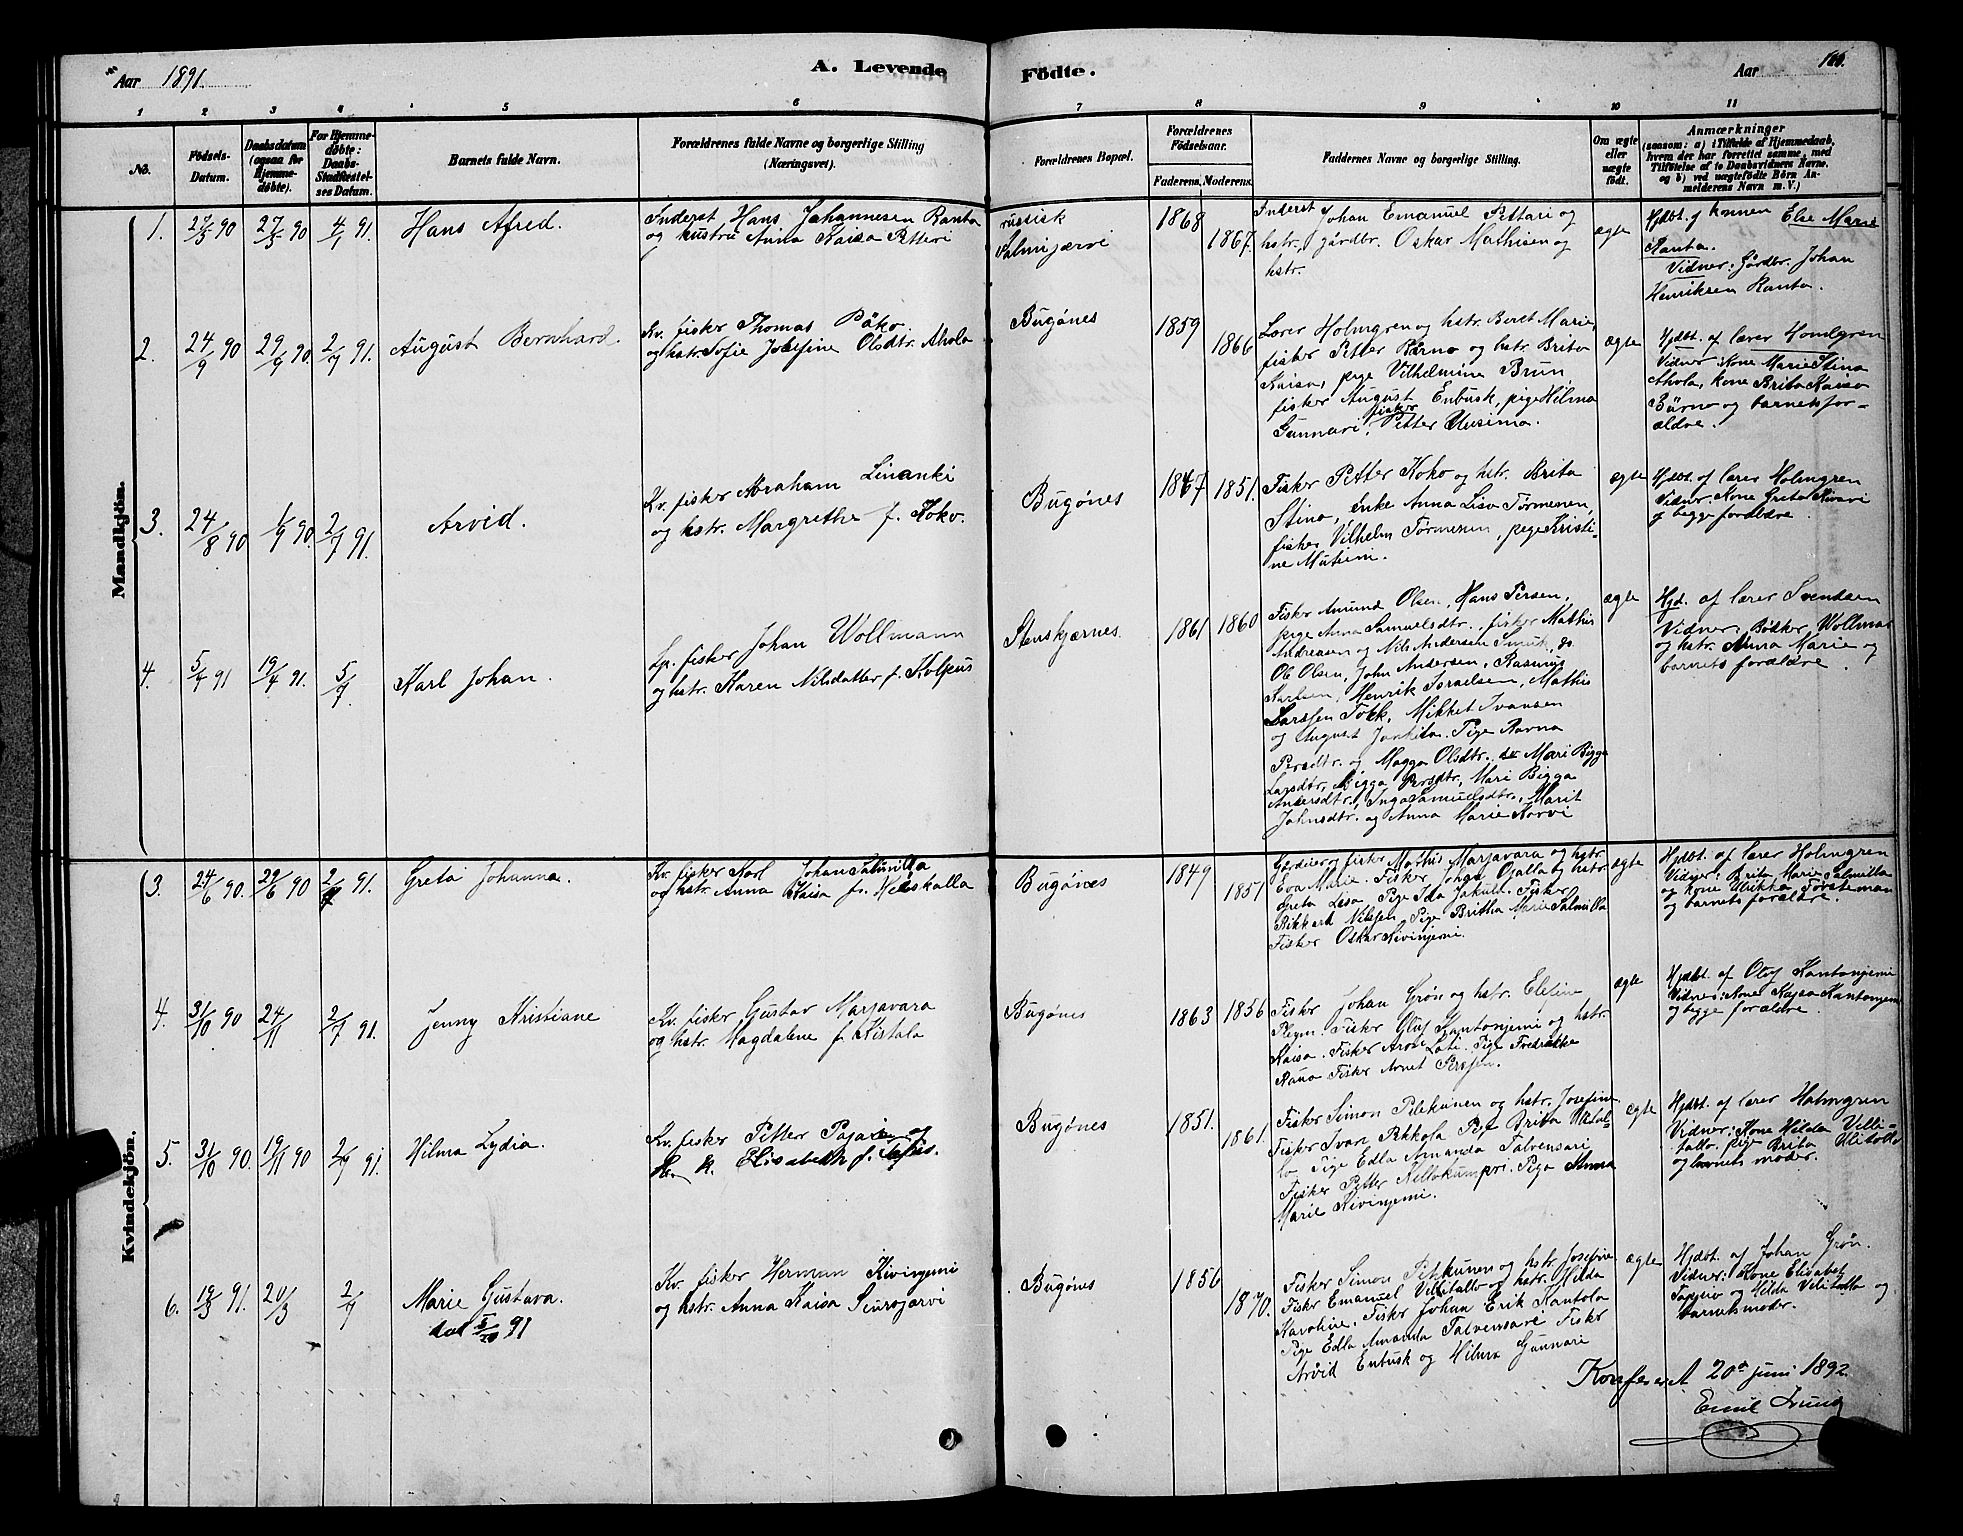 Aar 1891.
A. Levende Födte.
Aar
1 2 3 4 5 6 7 8 9 10 11
No.
Födsels-Datum.
Daabsdatum (ogsaa for Hjemme-döbte).
For Hjemme-döbte: Daabs-Stadfæstel-ses Datum.
Barnets fulde Navn.
Forældrenes fulde Navne og borgerlige Stilling (Næringsvei).
Forældrenes Bopæl.
Forældrenes Födselsaar.
Faderens. Moderens.
Faddernes Navne og borgerlige Stilling.
Om ægte eller uægte födt.
Anmærkninger
(saasom: a) i Tilfælde af Hjemmedaab, hvem der har forrettet samme, med Tilföielse af to Daabsvidners Navne, og b) ved uægtefödte Börn An-melderens Navn m. V.)
Mandkjön.
1. 27/5 90 27/5 90 4/1 91. Hans Afred.
Inderst Hans Johannesen Ranta
og hustru Anna Kaisa Petteri
russisk
Salmijærvi
1868 1867.
Inderst Johan Emanuel Pettari og
hstr., gårdbr. Oskar Mathisen og
hstr.
ægte
Hjdbt. af konen Else Marie
Ranta.
Vidner: Gårdbr. Johan
Henriksen Ranta.
2. 24/9 90 29/9 90 2/7 91. August Bernhard.
Kv. fisker Thomas Päko
og hstr. Sofie Josefine Olsdtr. Ahola
Bugönes
1859 1866
Lærer Holmgren og hstr. Beret Marie,
fisker Petter Pärno og hstr. Brita
Kaisa, pige Vilhelmine Brun
fisker August Enbusk, pige Hilma
Gunnari, fisker Petter Uusima.
ægte
Hjdbt. af lærer Homlgren
Vidner: Kone Marie Stina
Ahola, kone Brita Kaisa
Bärno og barnets for-
ældre.
3. 24/8 90 1/9 90. 2/7 91. Arvid.
Kv. fisker Abraham Linanki
og hstr. Margrethe f. Koko.
Bugönes
1847 1851.
Fisker Petter Koko og hstr. Brita
Stina, enke Anna Lisa Törmenen,
fisker Vilhelm Törmenen, pige Kristi-
ne Muteini.
ægte
Hjdbt. af lærer Holmgren
Vidner: Kone Greta Kivari
og begge forældre.
4. 5/4 91 19/4 91. 5/7 Karl Johan.
Lp. fisker Johan Wollmann
og hstr. Karen Nilsdatter f. Kolpus
Stenskjærnes.
1861 1860
Fisker Amund Olsen, Hans Persen,
pige Anna Samuelsdtr., fisker Mathis
Andreasen og Nils Andersen Smuk, do.
Ol Olsen, John Andersen, Rasmus
Karlsen, Henrik Israelsen, Mathis
Larssen Tokk, Mikkel Ivansen
og August Jankila. Pige Ravna
Persdtr. og Magga Olsdtr. Mari Bigga
Larsdtr, Bigga Persdtr, Mari Bigga
Andersdtr, Inga Samuelsdtr., Marit
Johnsdtr. og Anna Marie Korvi
ægte
Hjd. af lærer Svendsen
Vidner: Bødker Wollman
og hstr. Anna Marie og
barnets forældre.
Kvindekjön.
3. 24/6 90. 29/6 90 2/7 91. Greta Johanna.
Kv. fisker Karl Johan Salmilla
og hstr. Anna Kaisa f. Heiskalla
Bugönes
1849 1857
Gårdeier og fisker Mathis Marjavara og hstr.
Eva Marie. Fisker Johan Ojalla og hstr.
Greta Lisa, Pige Ida Jakula. Fisker
Rikkard Nilssen, Pige Britha Marie Salmilla
Fisker Oskar Kivinjemi.
ægte
Hjdbt. af lærer Holmgren
Vidner: Brita Marie Salmilla
og kone Ulrikka Försteman
og barnets forældre.
4. 31/10 90 24/11 2/7 91. Jenny Kristiane
Kv. fisker Gustav Marjavara
og hstr. Magdalene f. Kistala
Bugönes
1863 1856
Fisker Johan Grön og hstr. Elesine
Plym. Fisker Oluf Kantonjemi og hstr.
Kaisa. Fisker Aron Lati. Pige Fredrikke
Rano Fisker Arnet Perssen.
ægte
Hjdbt. af Oluf Kantonjemi
Vidner: Kone Kajsa Kantonjemi
og begge forældre.
5. 31/10 90. 19/11 90 2/7 91. Hilma Lydia.
Kv. fisker Petter Pajari og
Elisabeth f.
Bugönes
1851. 1861.
Fisker Simon Pelkkunen og hstr. Josefine
Fisker Ivar Pekkola Pige Brita Ulital-
lo, Pige Edla Amanda Talvensari
Fisker Petter Kellokumpri. Pige Anna
Marie Kivinjemi.
ægte
Hjdbt. af lærer Holmgren
Vidner: Kone Hilda Velli-
tallo, pige Brita Ulitallo
og barnets moder.
6. 19/3 91. 20/3 2/7 Marie Gustava.
död 5/10 91
Kv. fisker Herman Kivinjemi
og hstr. Anna Kaisa Siurojarvi
Bugönes
1856 1870.
Fisker Simon Pelkkunen og hstr. Josefine
Fisker Emanuel Vellitallo og hstr. Hilda
Karoline. Fisker Johan Erik Kantola
Pige Edla Amanda Talvensari Fisker
Arvid Enbusk og Hilma Gunnari
ægte
Hjdbt. af Johan Grön.
Vidner: Kone Elisabet
og Hilda Velitallo og
barnets moder.
Konfereret 20de juni 1892.
Emil Lund